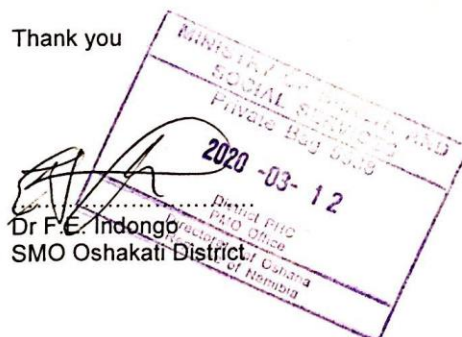 Thank you
MINISTRY OF HEALTH AND
SOCIAL SERVICES
Private Bag
2020 -03- 12
District PHC
PMO Office
Directorate of Oshana
Republic of Namibia
Dr F.E. Indongo
SMO Oshakati District